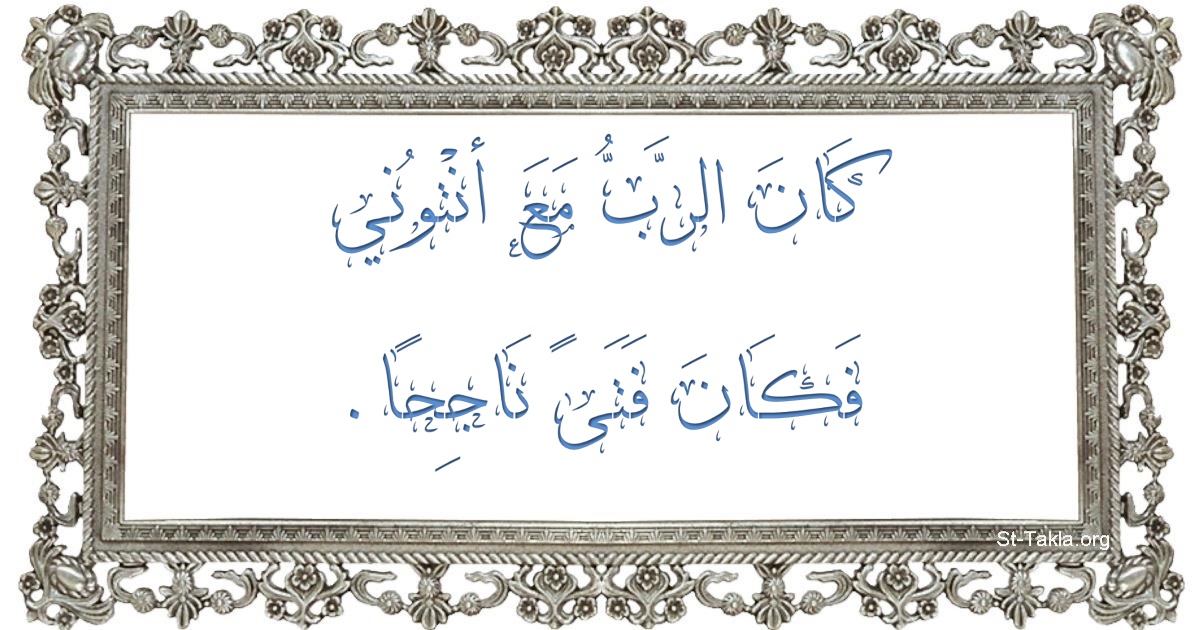 كَانَ الرَّبُّ مَعَ أنْتُوُني
فَكَانَ فَتَىً نَاجِحًا .
St-Takla.org